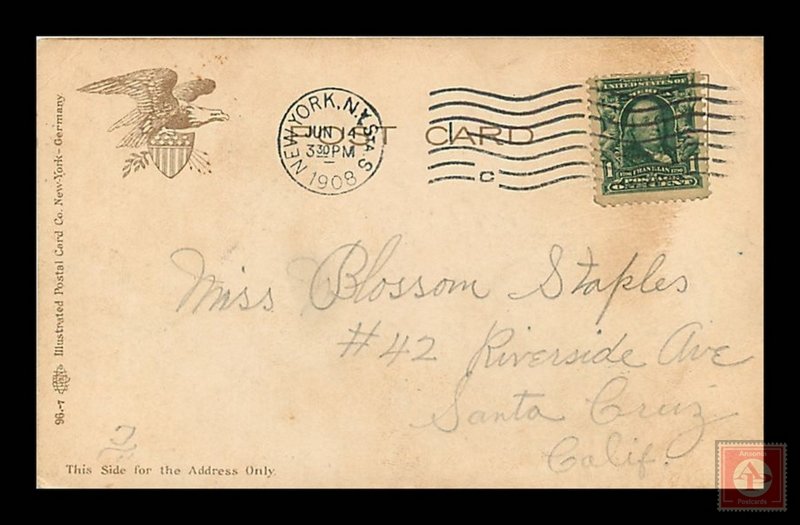 POST CARD
NEW YORK, N.Y. STA S
JUN 14
3 30 PM
1908
C
UNITED STATES OF
1 FRANKLIN 1
POSTAGE
ONE CENT
Miss Blossom Staples
#42 Riverside Ave
Santa Cruz
Calif.
2
This Side for the Address Only.
96.-7 Illustrated Postal Card Co. New-York - Germany
Ansonia
AP
Postcards